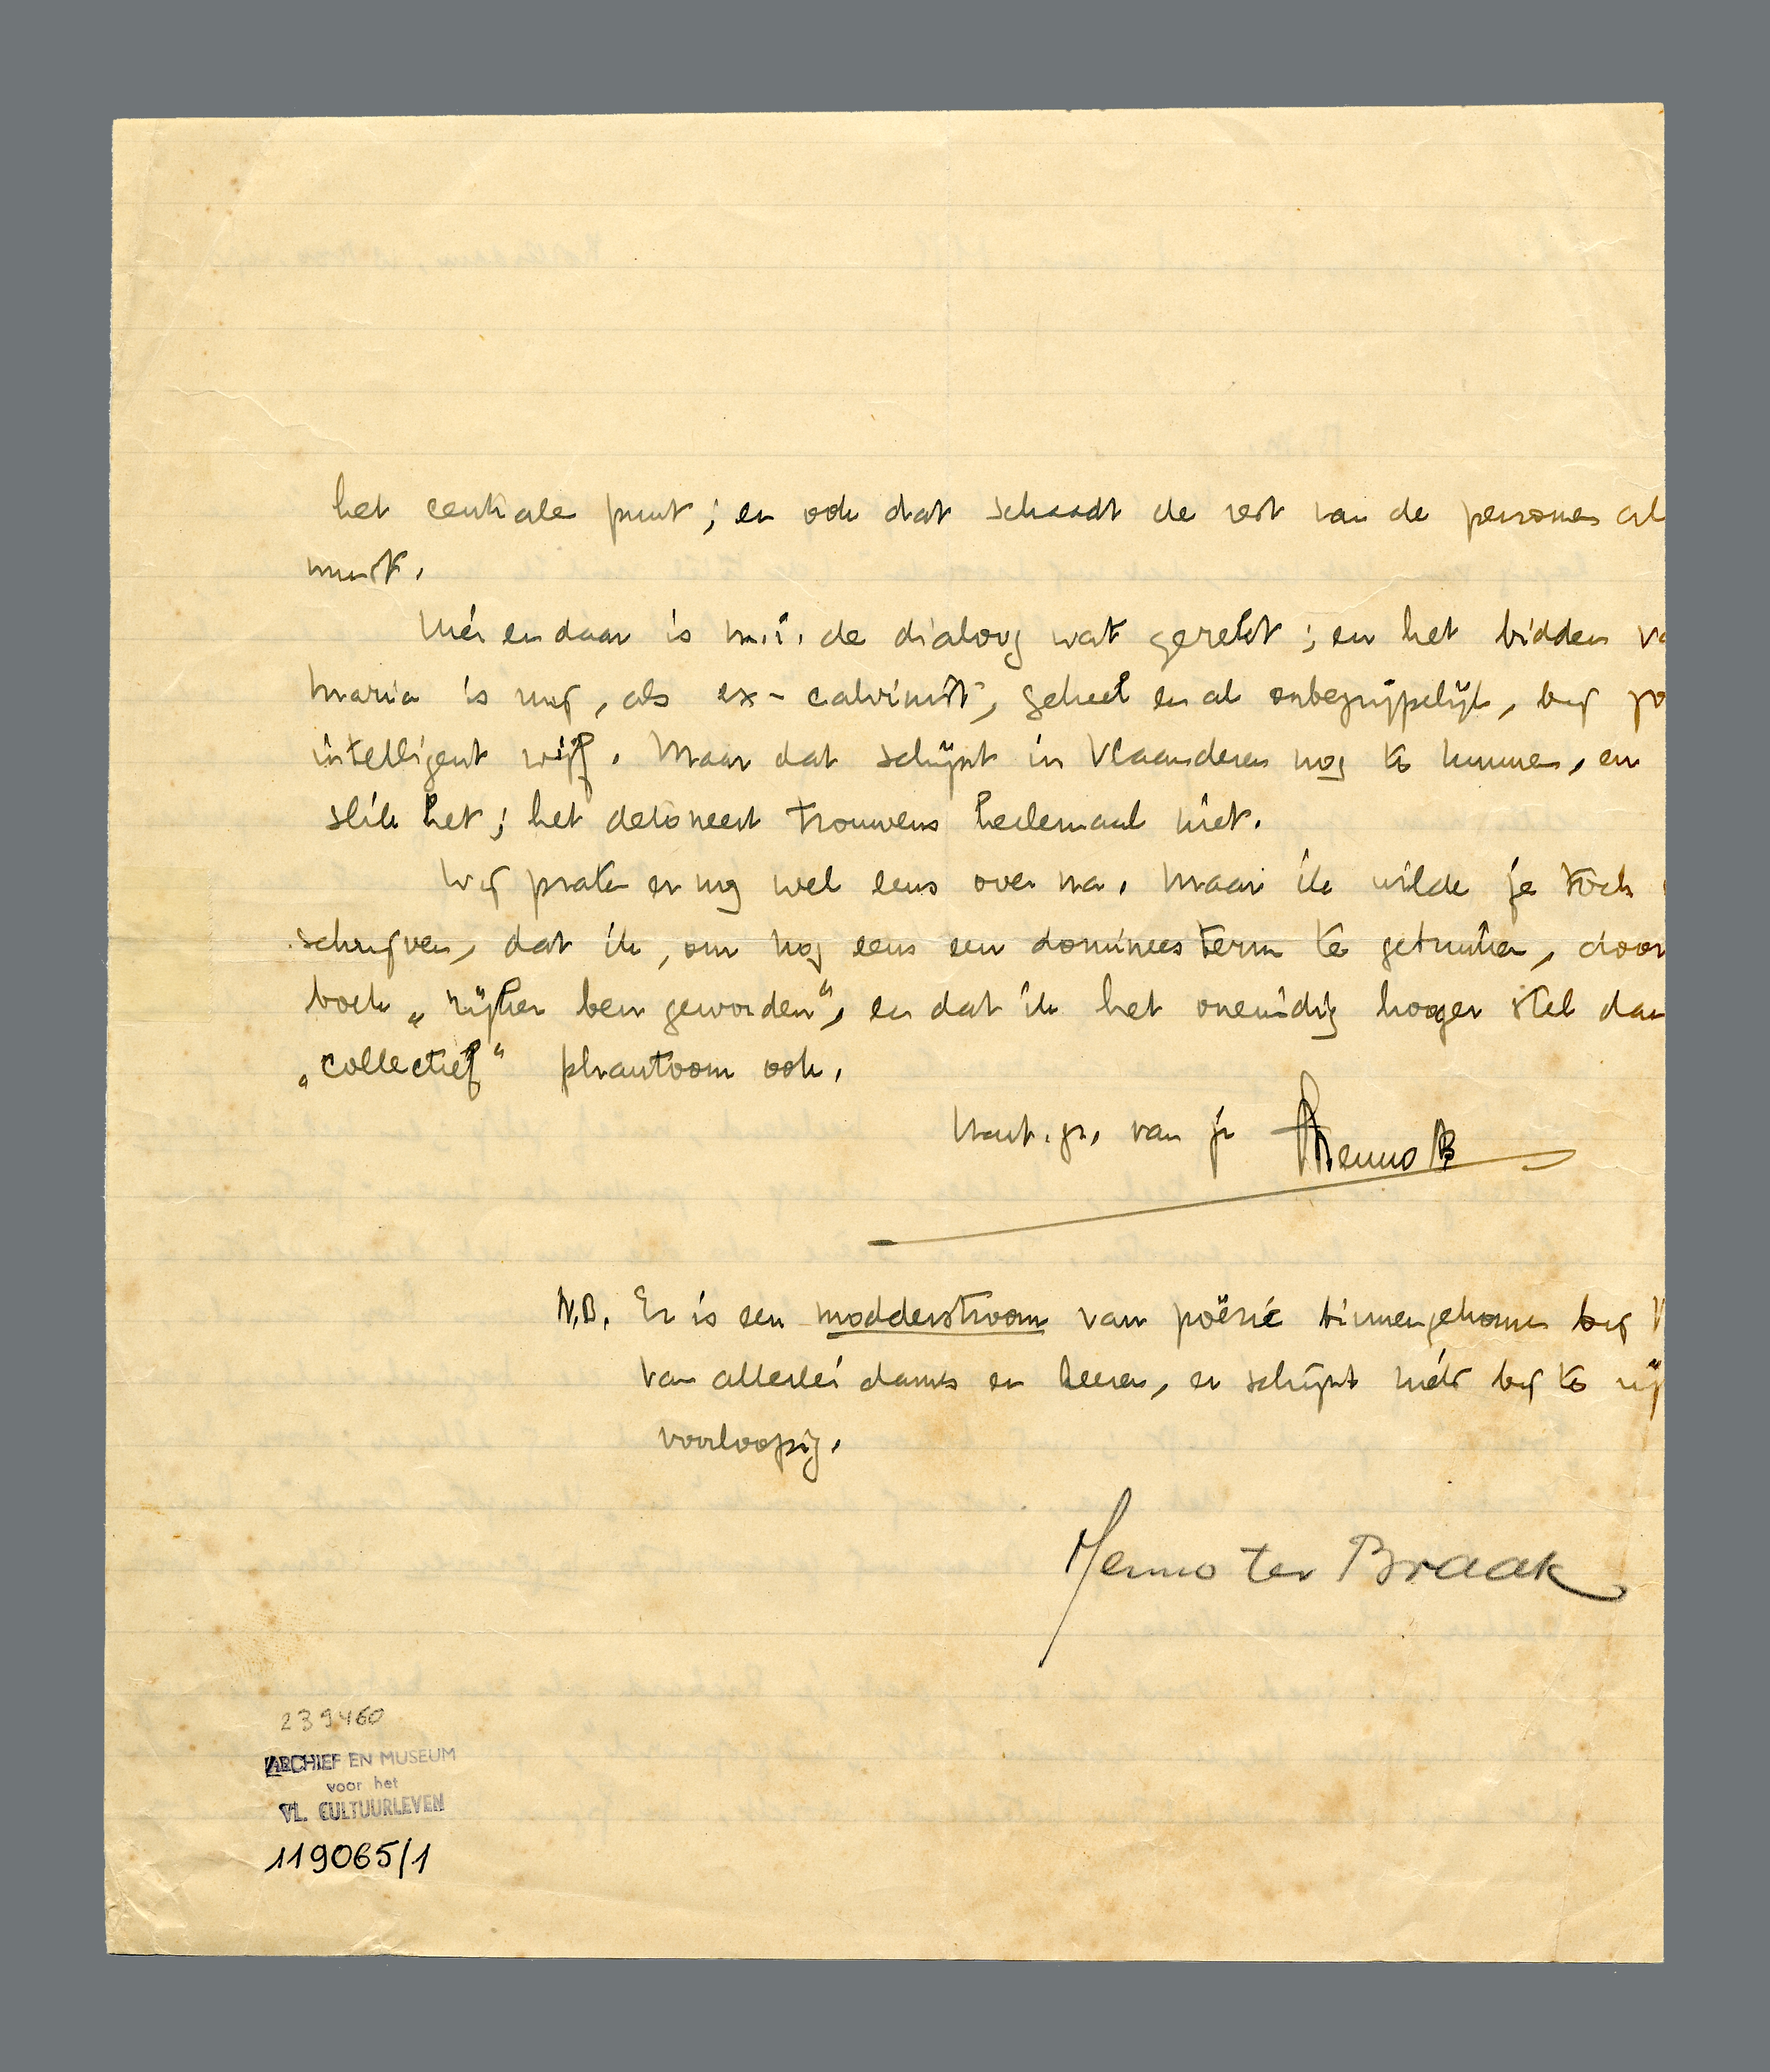 het centrale punt; en ook dat schaadt de rest van de personen al
munt.
Hier en daar is m.i. de dialoog wat gerekt; en het bidden va
Maria is mij, als ex-calvinist, geheel en al onbegrijpelijk, bij zo
intelligent wijf. Maar dat schijnt in Vlaanderen nog te kunnen, en
slik het; het detoneert trouwens heelemaal niet.
Wij praten er nog wel eens over na. Maar ik wilde je toch
schrijven, dat ik, om nog eens een dominees term te gebruiken, door
boek „rijker ben geworden”, en dat ik het oneindig hooger stel dan
„collectief” phantoom ook.
Hart. gr. van je Menno tB
N.B. Er is een modderstroom van poëzie binnengekomen bij
van allerlei dames en heeren, er schijnt niets bij te zij
voorloopig.
Menno ter Braak
239460
ARCHIEF EN MUSEUM
voor het
VL. CULTUURLEVEN
119065/1